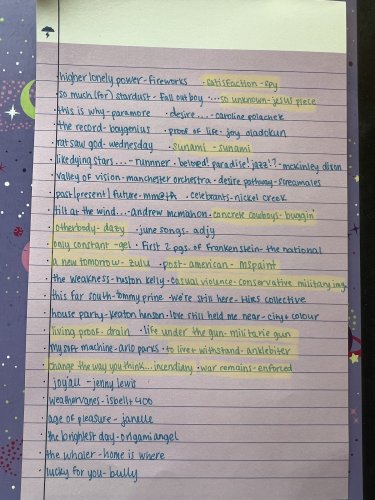 · higher lonely power - fireworks · satisfaction - spy
· so much (for) stardust - fall out boy · ...so unknown - jesus piece
· this is why - paramore · desire.... - caroline polachek
· the record - boygenius · proof of life - joy oladokun
· rat saw god - wednesday · sunami - sunami
· like dying stars... - runnner · beloved! paradise! jazz!? - mckinley dixon
· valley of vision - manchester orchestra · desire pathway - screamales
· past | present | future - mmeth · celebrants - nickel creek
· tilt at the wind... - andrew mcmahon · concrete cowboys - buggin'
· otherbody - dazy · june songs - adjy
· only constant - gel · first 2 pgs. of frankenstein - the national
· a new tomorrow - zulu · post-american - mspaint
· the weakness - ruston kelly · casual violence - conservative military
· this far south - tommy prine · we're still here - hirs collective
· house party - keaton henson · love still held me near - city + colour
· living proof - drain · life under the gun - militarie gun
· my soft machine - arlo parks · to live + withstand - anklebiter
· change the way you think... incendiary · war remains - enforced
· joy'all - jenny lewis
· weathervanes - isbell + 400
· age of pleasure - janelle
· the brightest day - origami angel
· the whaler - home is where
· lucky for you - bully